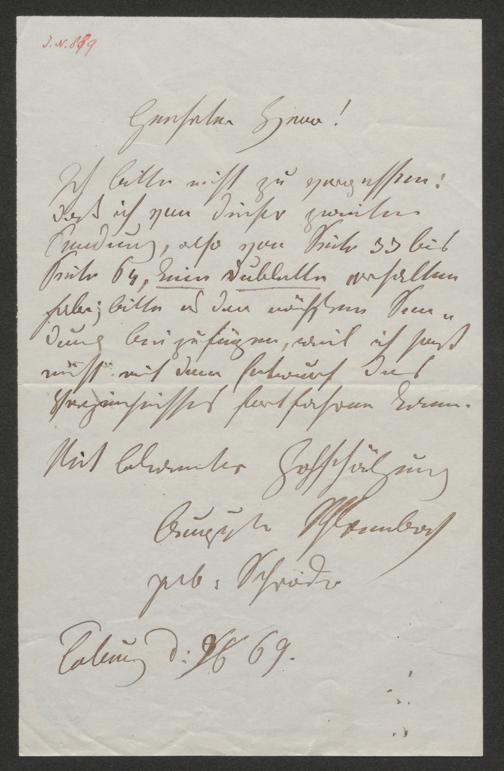 I. N. 869
Geehrter Herr!
Ich bitte nicht zu vergessen:
daß ich von dieser zweiten
Sendung, also von Seite 33 bis
Seite 64, keine Dublette erhalten
habe; bitte es der nächsten Sen-
dung beizufügen, weil ich sonst
nicht mit dem Entwurf des
Verzeichnisses fortfahren kann.
Mit bekannter Hochschätzung
Auguste
geb: Schröder
Coburg d: 69.